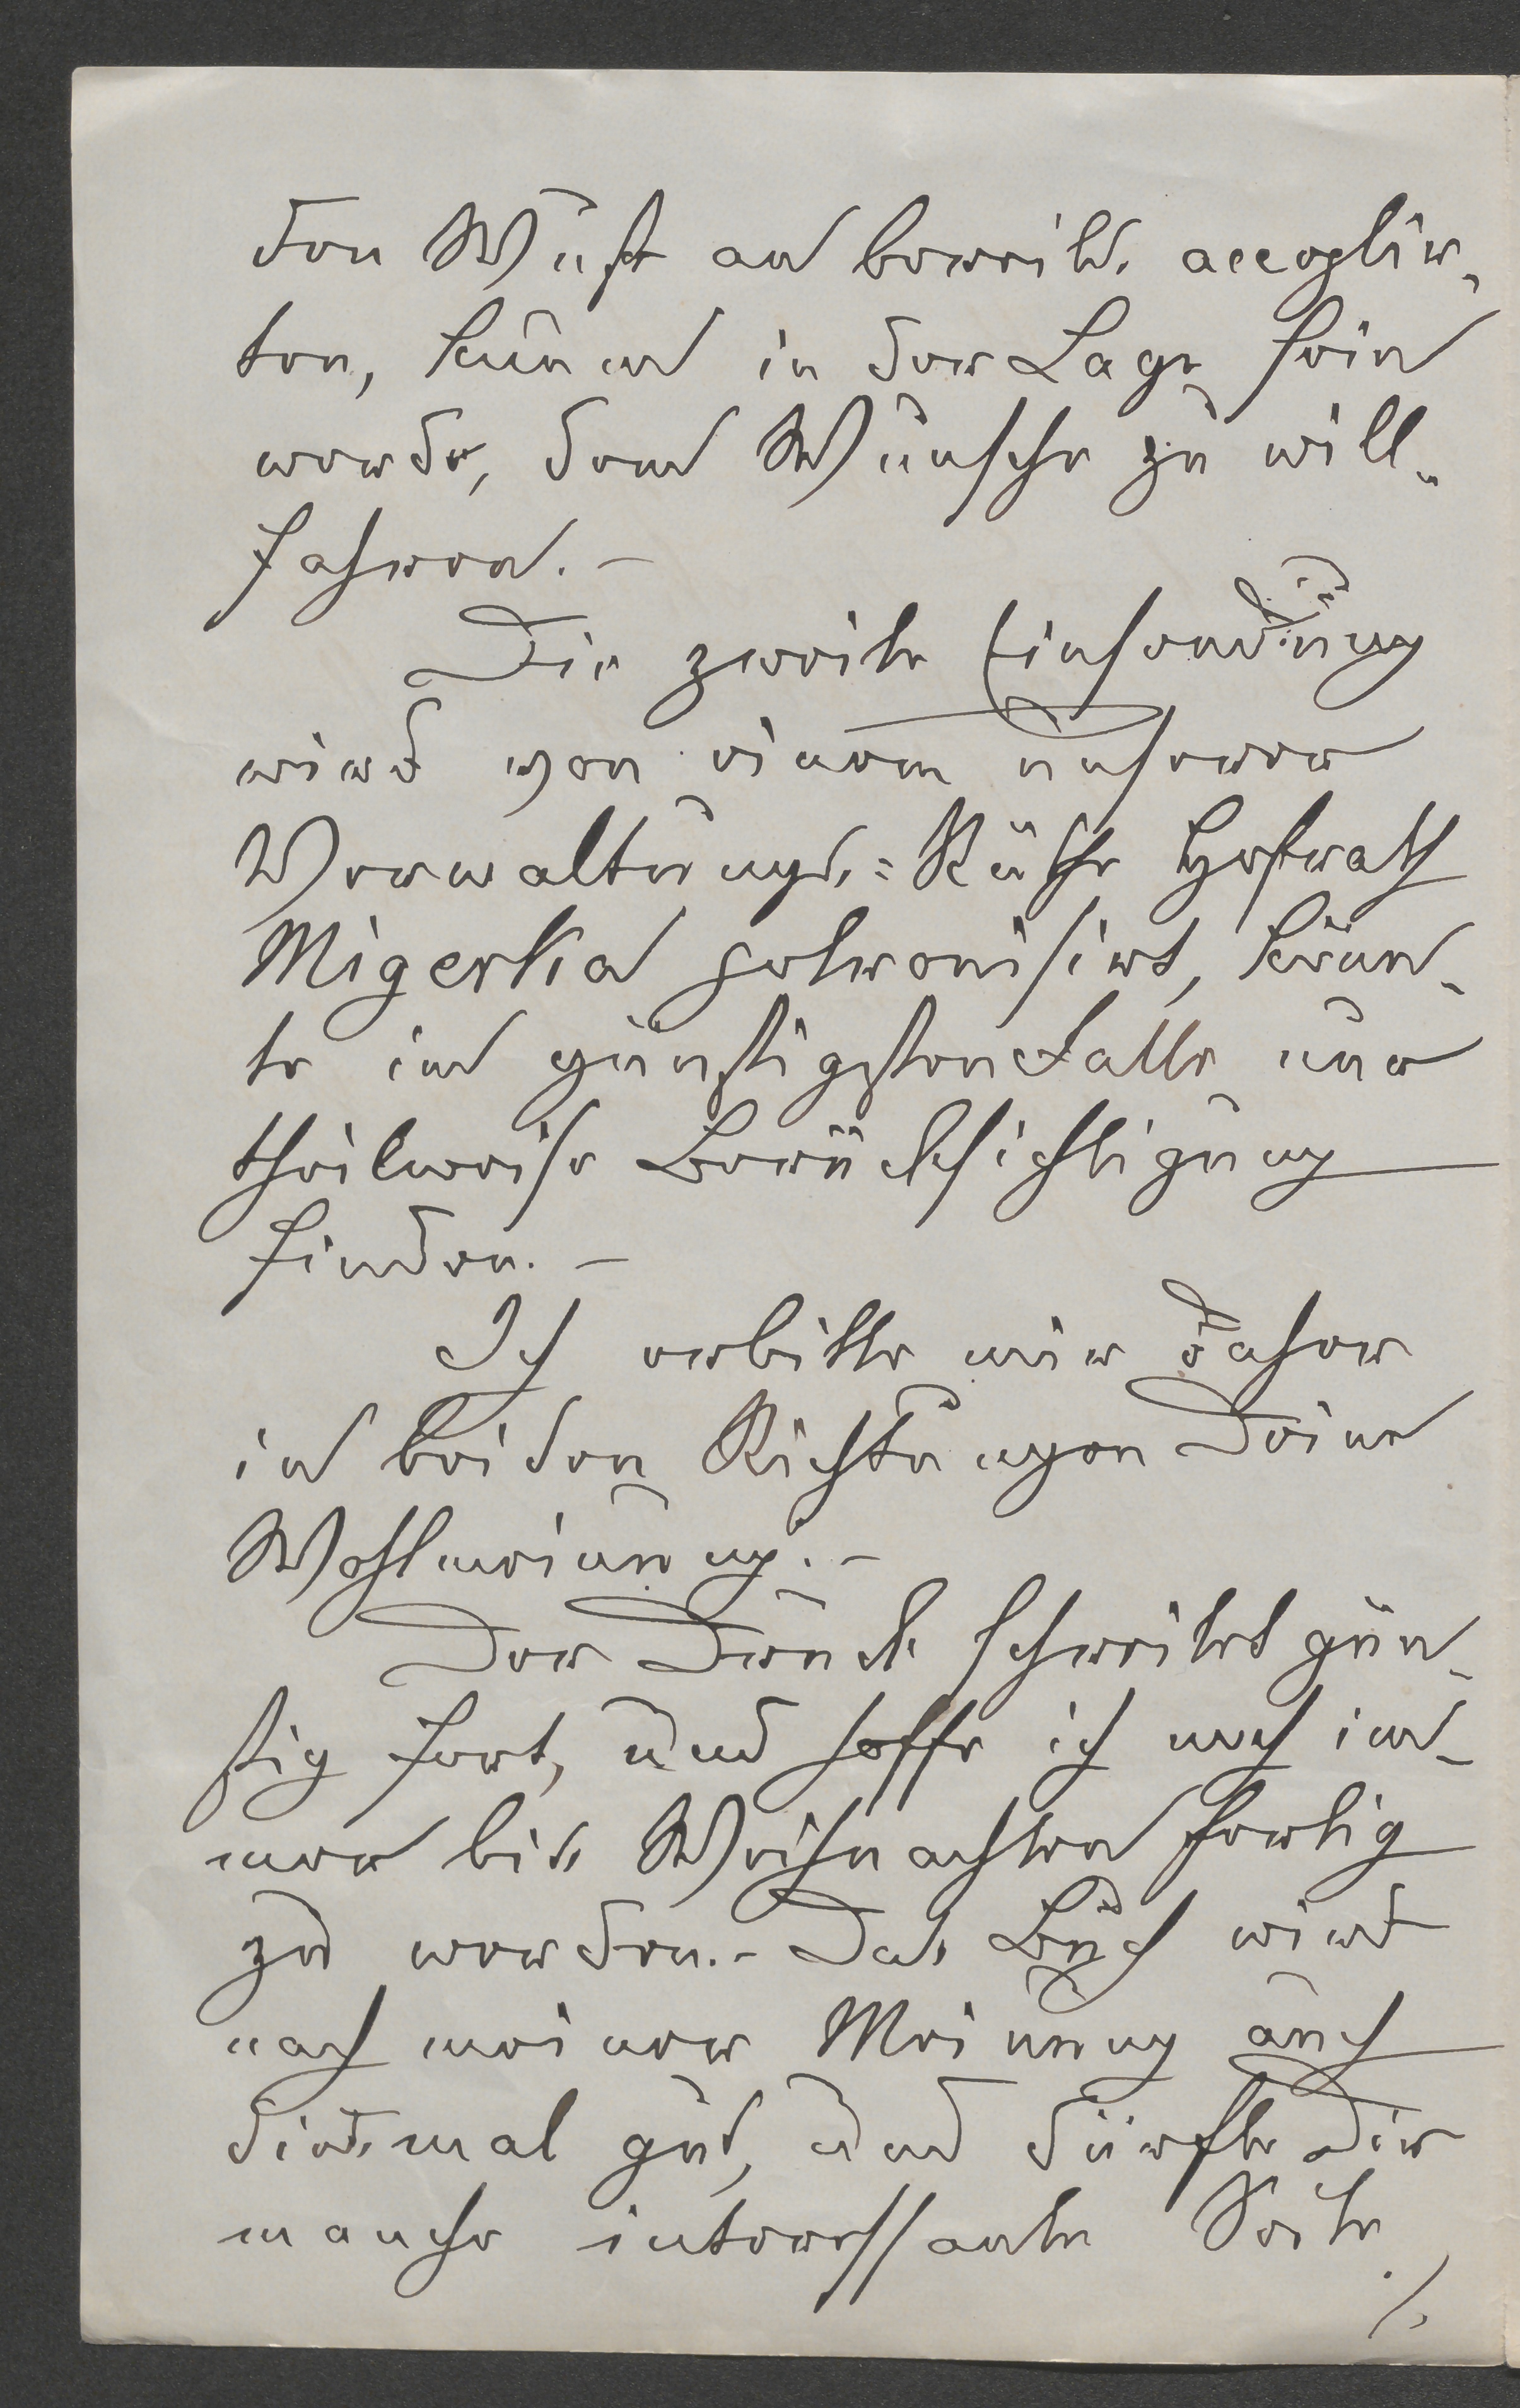 den Wust an bereits acceptir-
ten, kaum in der Lage sein
werde, dem Wunsche zu will-
fahren. –
Die zweite Einsendung
wird von einem unserer
Verwaltungs=Räthe Hofrath
Migerka patronisirt, könn-
te im günstigsten Falle nur
theilweise Berücksichtigung
finden. –
Ich erbitte mir daher
in beiden Richtungen Deine
Wohlmeinung. –
Der Druck schreitet gün-
stig fort, und hoffe ich noch im-
mer bis Weihnachten fertig
zu werden. – Das Buch wird
nach meiner Meinung auch
diesmal gut, und dürfte Dir
manche interessante Seite
./.